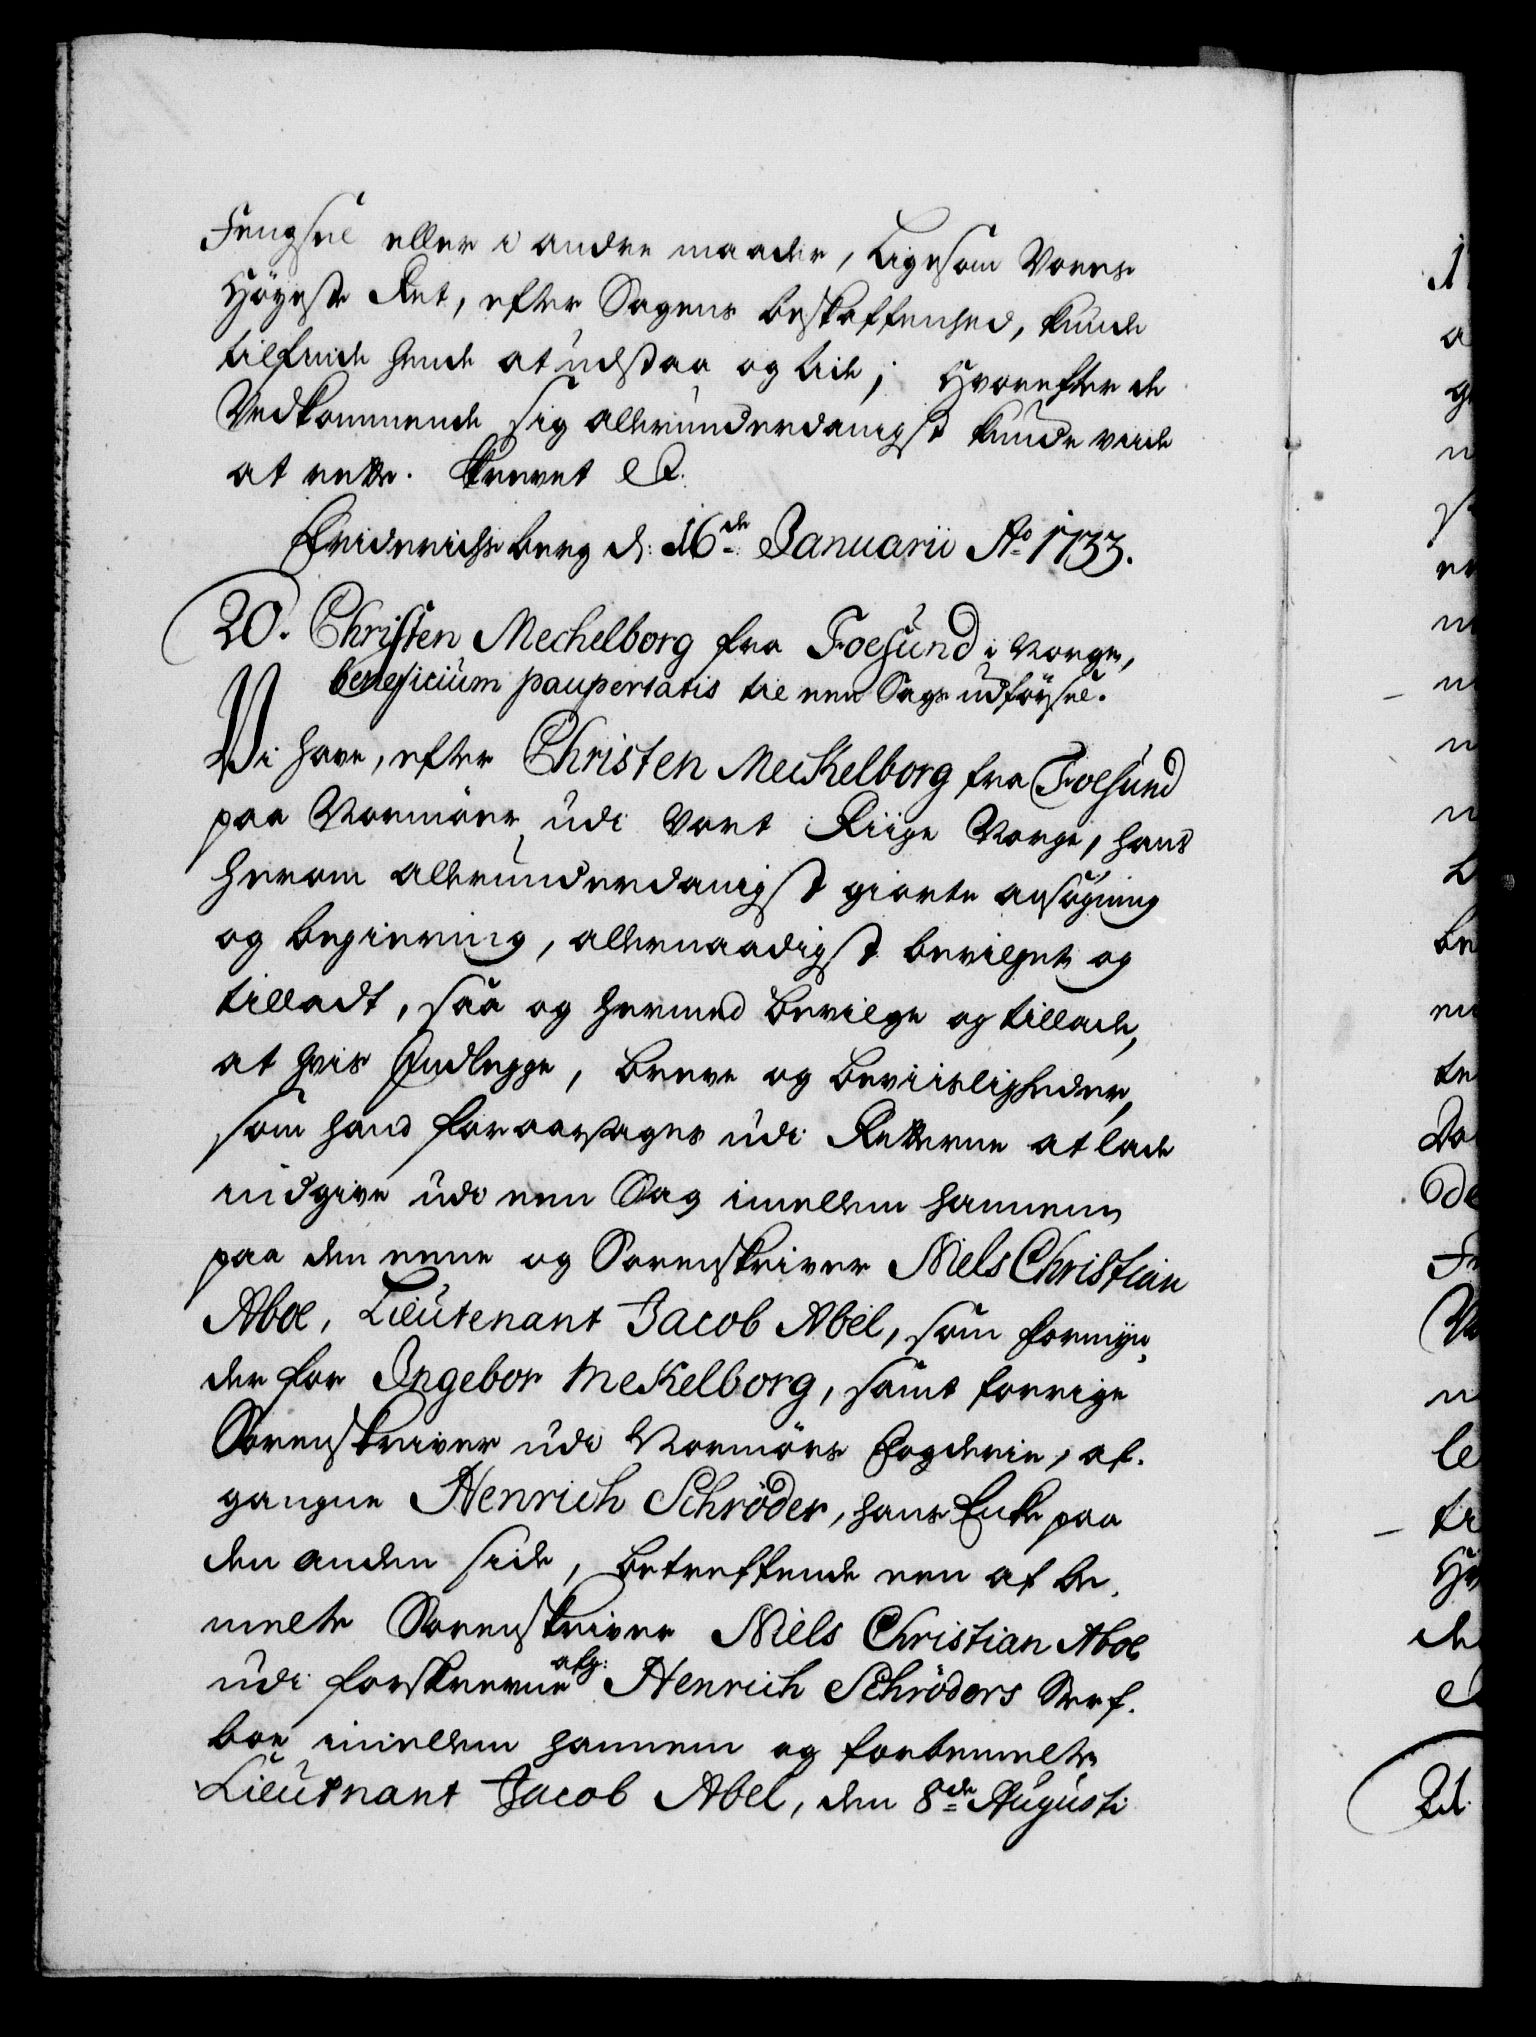 Fengsel eller i andre maader, ligesom Vores
Høyeste Ret, efter Sagens beskaffenhed, kunde
tilfinde hende at udstaa og lide; Hvorefter de
Vedkommende sig allerunderdanigst kunde vide
at rette. Skrevet &c.
Friderichsberg d: 16de Januarii Ao 1733.
20. Christen Mechelborg fra Foesund i Norge,
beneficium paupertatis til een Sags udførsel.
Vi have, efter Christen Meckelborg fra Foesund
paa Normøer udi Vort Riige Norge, hans
herom allerunderdanigst giorte ansøgning
og begiering, allernaadigst bevilget og
tilladt, saa og hermed bevilge og tillade,
at hvis Indlegge, breve og beviisligheder,
som hand foraarsages udi Retterne at lade
indgive udi een Sag imellem hannem
paa den eene og Sorenskriver Niels Christian
Aboe, Lieutenant Jacob Abel, som formyn,
der for Ingebor Mekelborg, samt forrige
Sorenskriver udi Normørs Fogderie, af-
gangne Henrich Schrøder, hans Enke paa
den anden side, betreffende een af be-
melte Sorenskriver Niels Christian Aboe
udi forskrevne afg: Henrich Schrøders Sterf-
boe imellem hannem og forbemelte
Lieutnant Jacob Abel, den 8de Augusti
21.